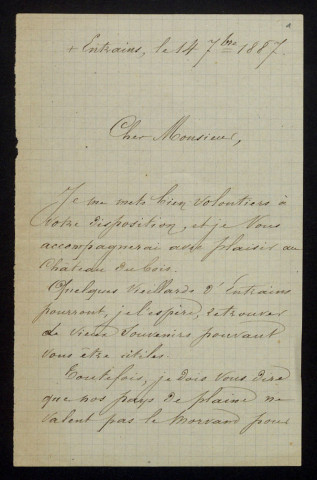 + Entrains, le 14 7bre 1887.
Cher Monsieur,
Je me mets bien volontiers à
votre disposition, et je vous
accompagnerai avec plaisir au
Château du bois.
Quelques vieillards d'Entrains
pourront, je l'espère, retrouver
de vieux souvenirs pouvant
vous être utiles.
Toutefois, je dois vous dire
que nos pays de plaine ne
valent pas le Morvand pour